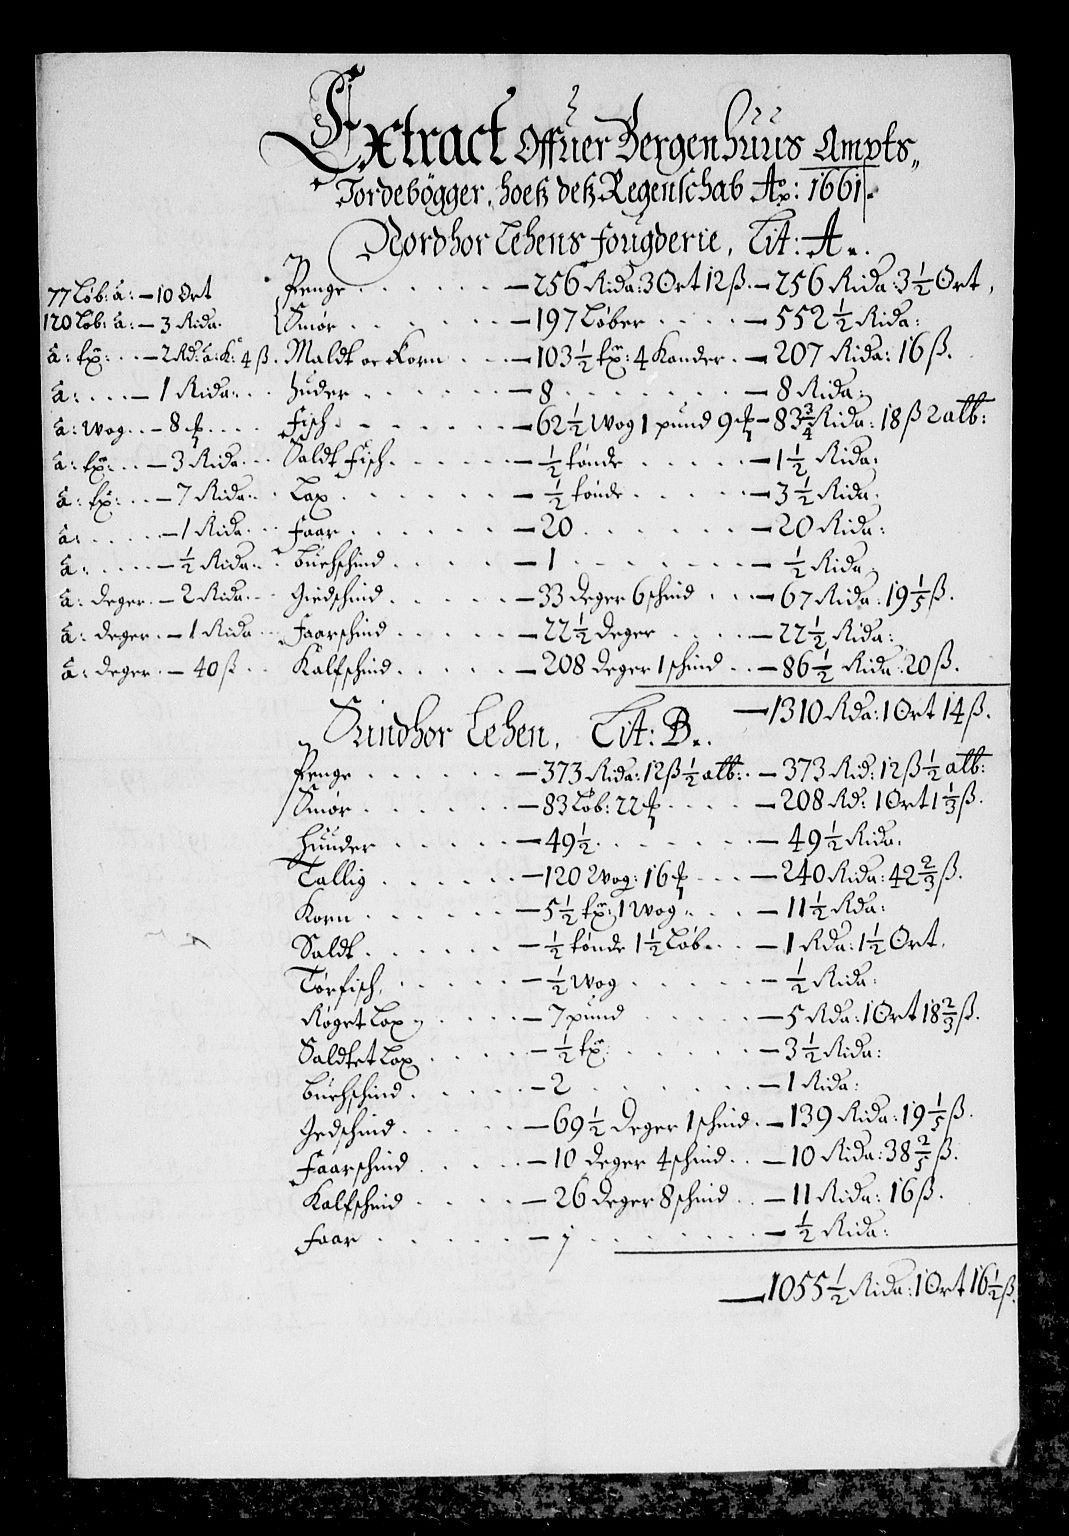 Extract Offuer Bergenhuus Ampts„
Jordebögger, hoeß deß Regenschab Ao: 1661.
Nordhor Lehens fougderie, Lit: A.
77 Løb: à: — 10 Ort Penge — 256 Rida: 3 Ort 12 ß. — 256 Rida: 3½ Ort,
120 Løb: à: — 3 Rida. Smør — 197 Løber — 552½ Rida:
à: tø: — 2 Rd: à: K: 4 ß. Maldt oc Korn — 103½ tø: 4 Kander — 207 Rida: 16 ß.
à: — 1 Rida: huder — 8 — 8 Rida:
à: Wog — 8 ℔ Fisch — 62½ Wog 1 pund 9 ℔ — 83¾ Rida: 18 ß 2 alb:
à: tø: — 3 Rida. Saldt Fisch — ½ tønde — 1½ Rida:
à: tø: — 7 Rida. Lax — ½ tønde — 3½ Rida.
à: — 1 Rida. Faar — 20 — 20 Rida:
à: — ½ Rida. buchschind — 1 — ½ Rida.
à: deger — 2 Rida. Giedschind — 33 deger 6 schind — 67 Rida: 19⅕ ß.
à: deger — 1 Rida Faarschind — 22½ deger — 22½ Rida:
à: deger — 40 ß Kalfschind — 208 deger 1 schind — 86½ Rida: 20 ß.
— 1310 Rda: 1 Ort 14 ß.
Sundhor Lehen, Lit: B.
Penge — 373 Rida: 12 ß ½ alb: — 373 Rid: 12 ß ½ alb:
Smør — 83 Løb: 22 ℔ — 208 Rd: 1 Ort 1⅓ ß.
Huuder — 49½ — 49½ Rida.
Tallig — 120 Wog: 16 ℔ — 240 Rida: 42⅔ ß.
Korn — 5½ tø: 1 Wog — 11½ Rda:
Saldt — ½ tønde 1½ Løb — 1 Rda: 1½ Ort.
Tørfisch — ½ Wog — ½ Rida:
Røget Lax — 7 pund — 5 Rda: 1 Ort 18⅔ ß.
Saldtet Lax — ½ tø: — 3½ Rida:
buchschind — 2 — 1 Rida:
Gedschind — 69½ deger 1 schind — 139 Rida: 19⅕ ß.
Faarschind — 10 deger 4 schind — 10 Rida: 38⅖ ß.
Kalfschind — 26 deger 8 schind — 11 Rida: 16 ß.
Faar — j — ½ Rida:
— 1055½ Rida: 1 Ort 16½ ß.